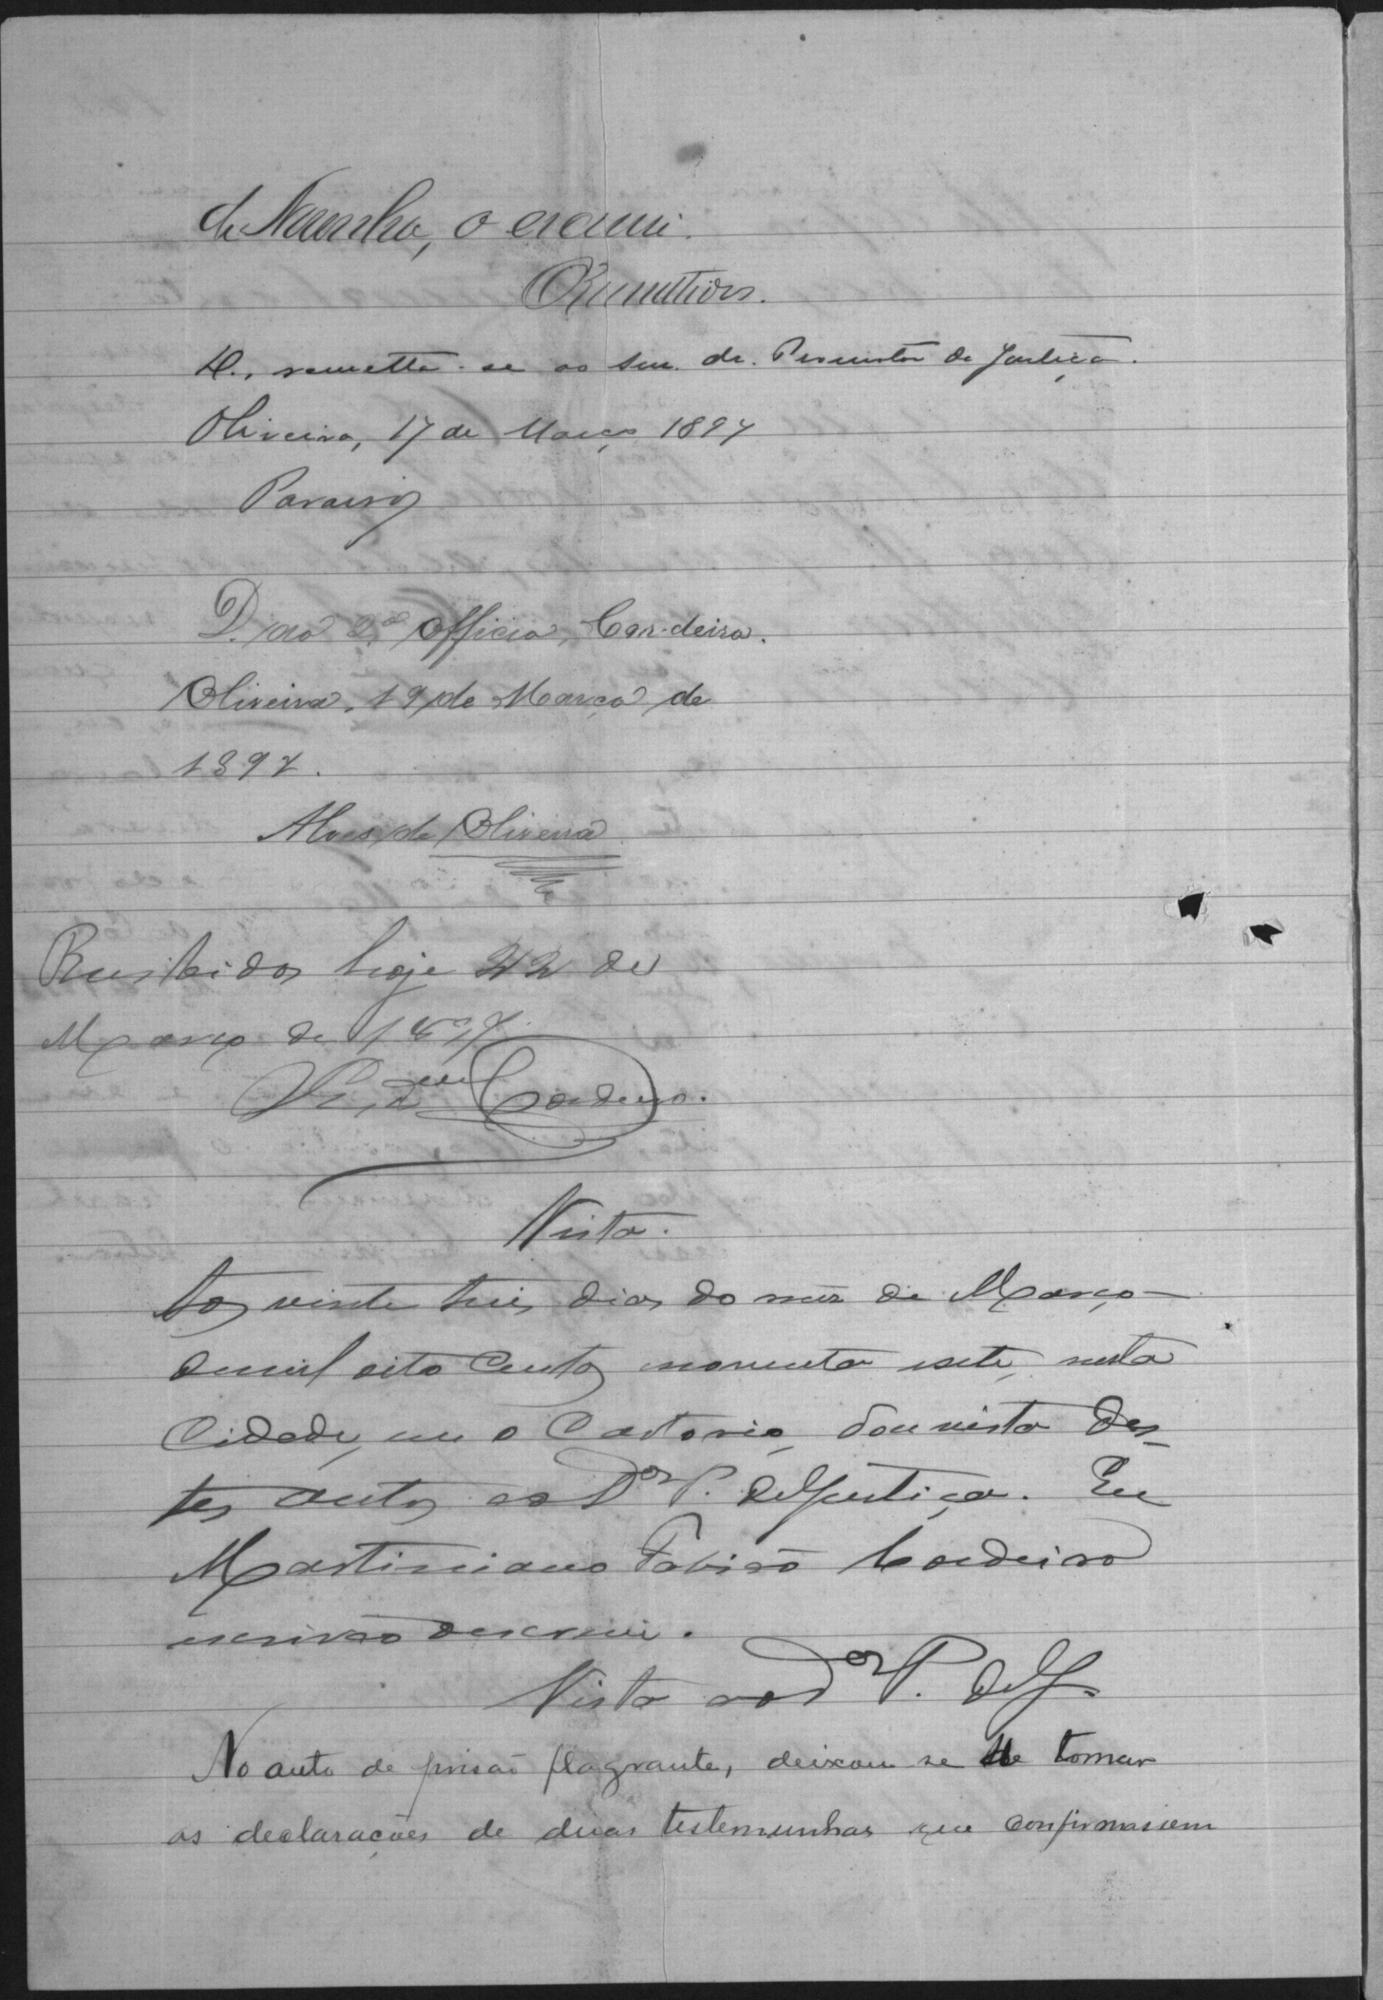 de Noronha, o escrevi.
Remettidos.
D., remetta-se ao snr. dr. Promotor da Justiça.
Oliveira, 17 de Março 1897
Paraiso
D. ao 2º Officio, Cordeiro.
Oliveira, 19 de Março de
1897.
Alves de Oliveira
Recibidos hoje 22 de
Março de 1897.
Cordeiro.
Vista.
Aos vinte tres dias do mez de Março
de mil oito centos noventa e sete, nesta
Cidade, em o Cartorio, dou vista des-
tes autos ao Dor P. de Justiça. Eu
Martiniano Cordeiro
escrivão o escrevi.
Vista ao Dor P. de J.
No auto de prisão flagrante, deixou-se de tomar
as declarações de duas testemunhas que confirmassem